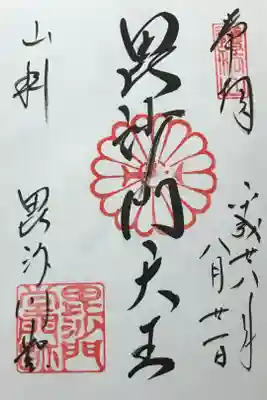 奉拝
平成廿八年
八月廿一日
毘沙門天王
山科
毘沙門堂
毘沙門
堂門跡